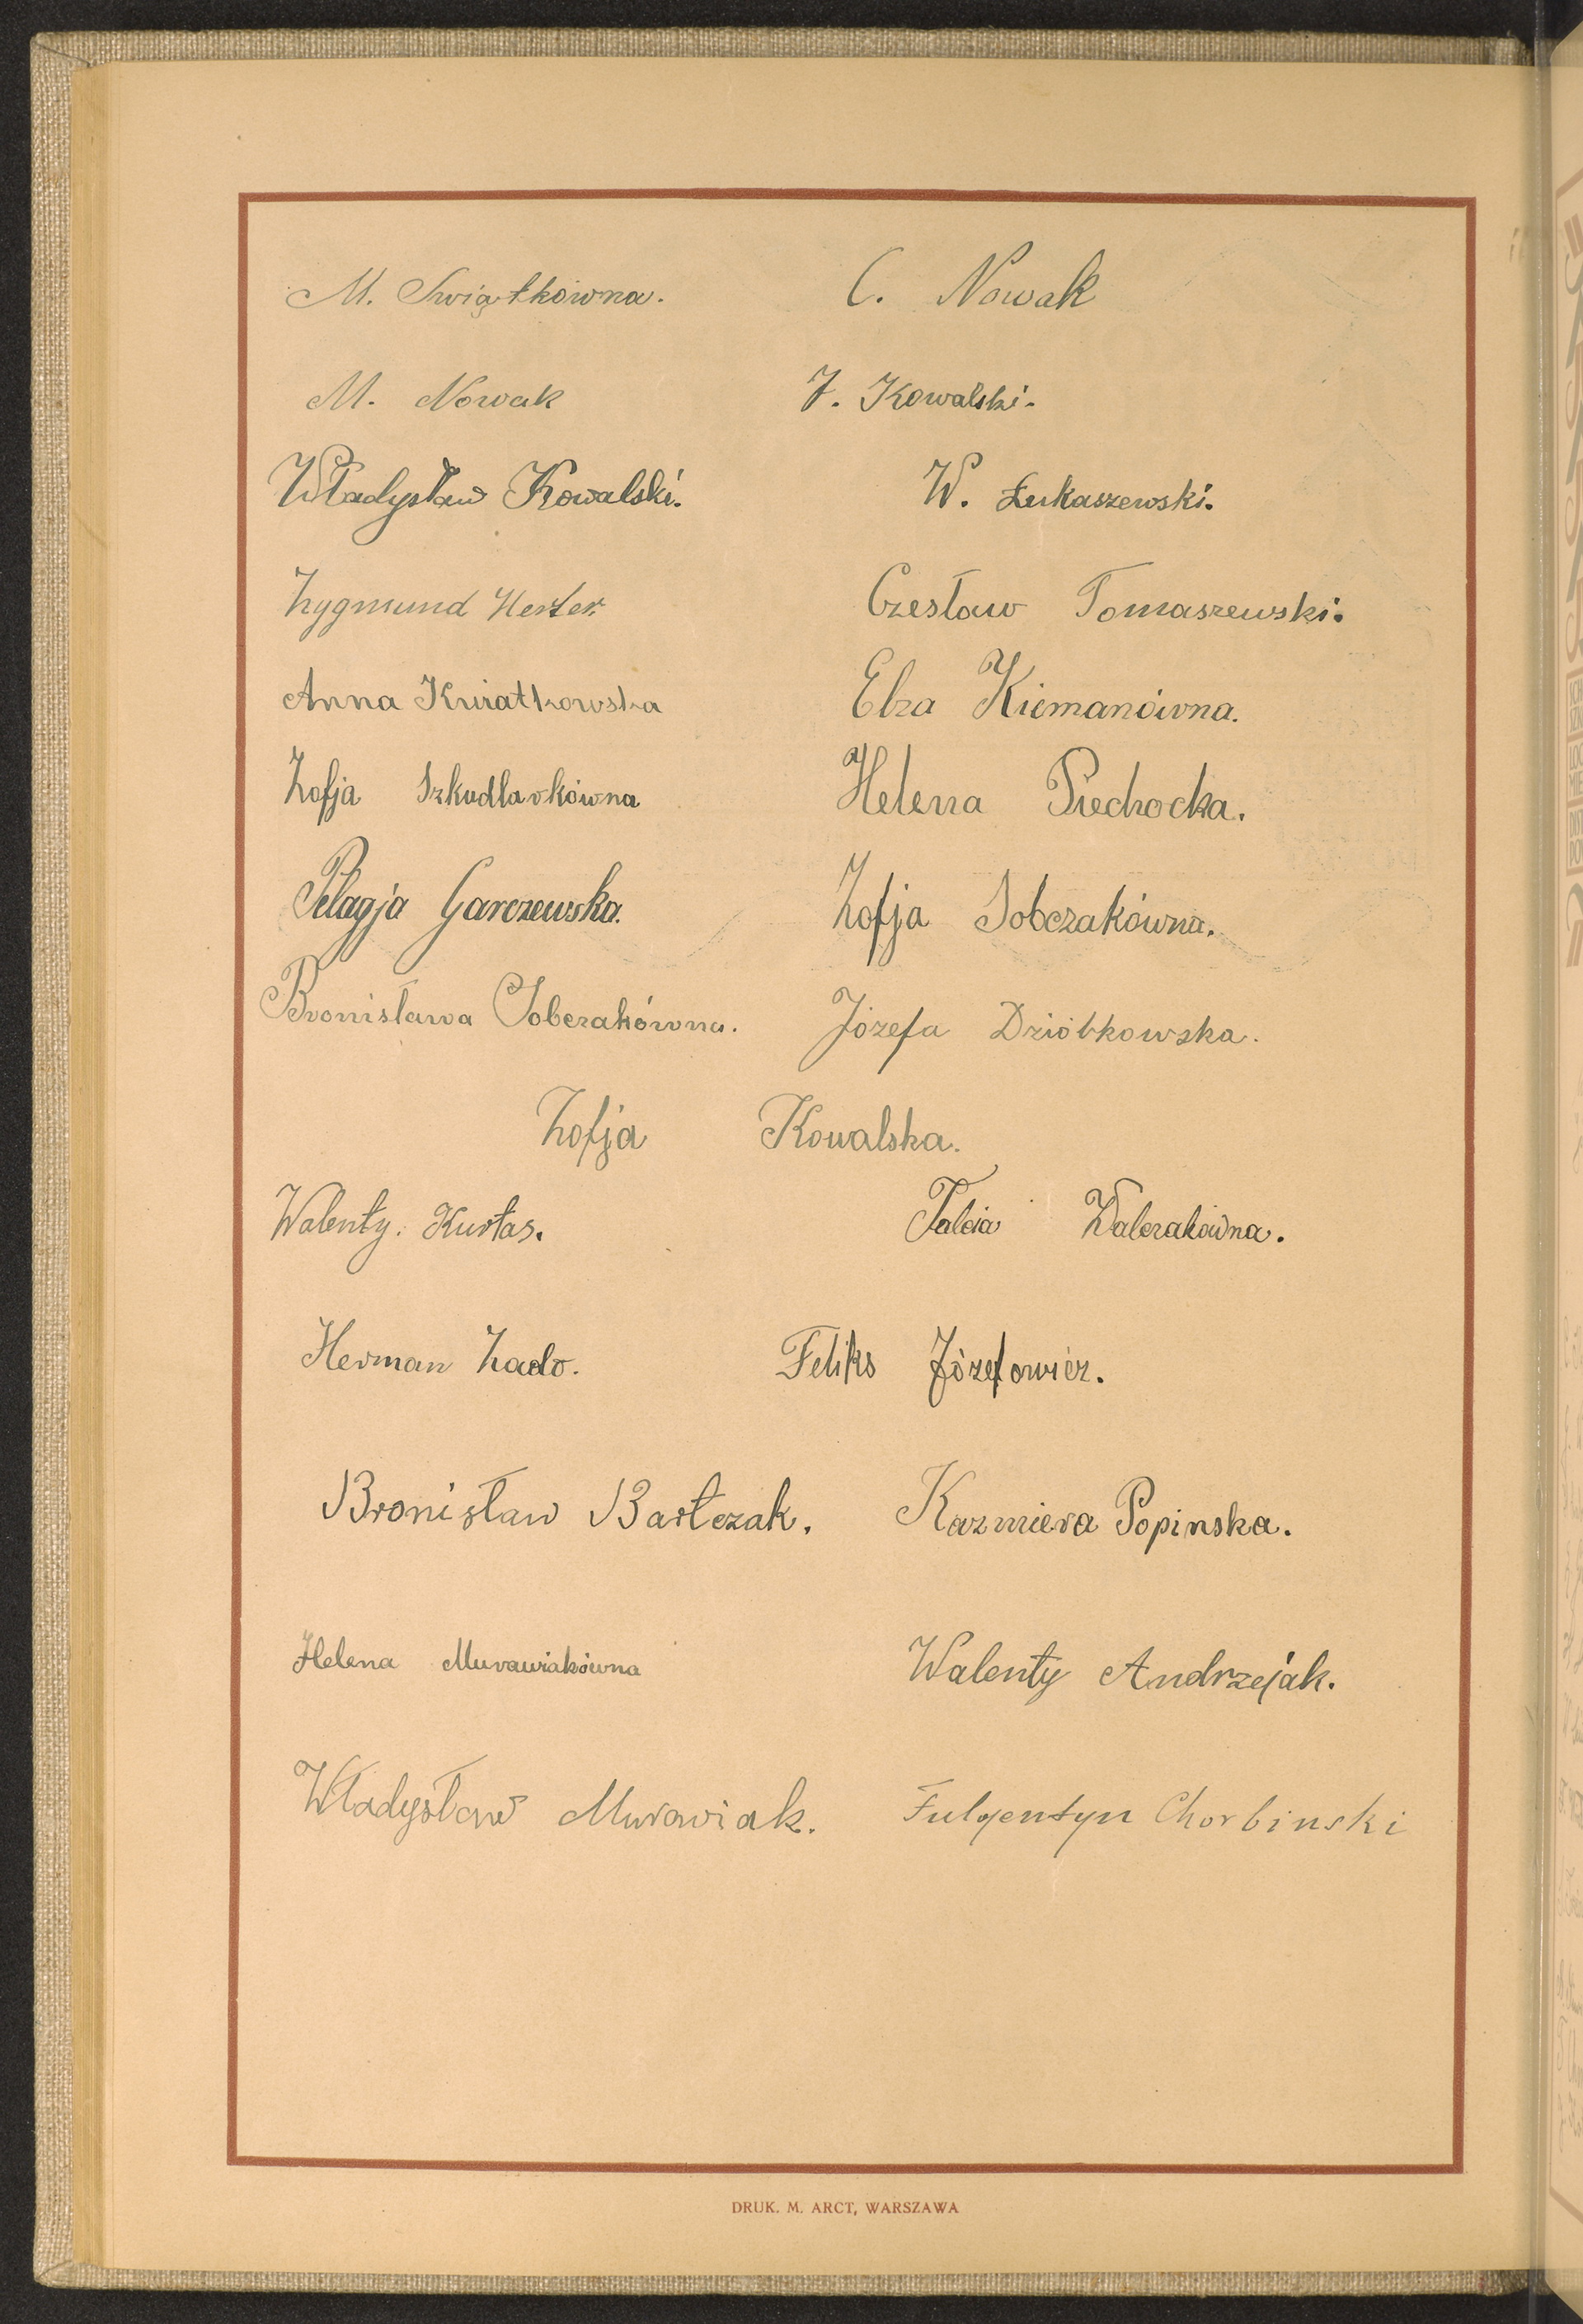 M. Swiątkówna. C. Nowak
M. Nowak J. Kowalski.
Władysław Kowalski. W. Łukaszewski.
Zygmund Herter. Czesław Tomaszewski.
Anna Kwiatkowska Elza Kiemanówna.
Zofja Szkudlarkówna Helena Piechocka.
Pelagja Garczewska. Zofja Sobczakówna.
Bronisława Sobczakówna. Józefa Dziótkowska.
Zofja Kowalska.
Walenty. Kurtas. Walczakówna.
Herman Zado. Feliks Józefowicz.
Bronisław Bartczak. Kazmiera Popinska.
Helena Murawiakówna Walenty Andrzejak.
Władysław Murawiak. Fulgentyn Chorbinski
DRUK. M. ARCT, WARSZAWA